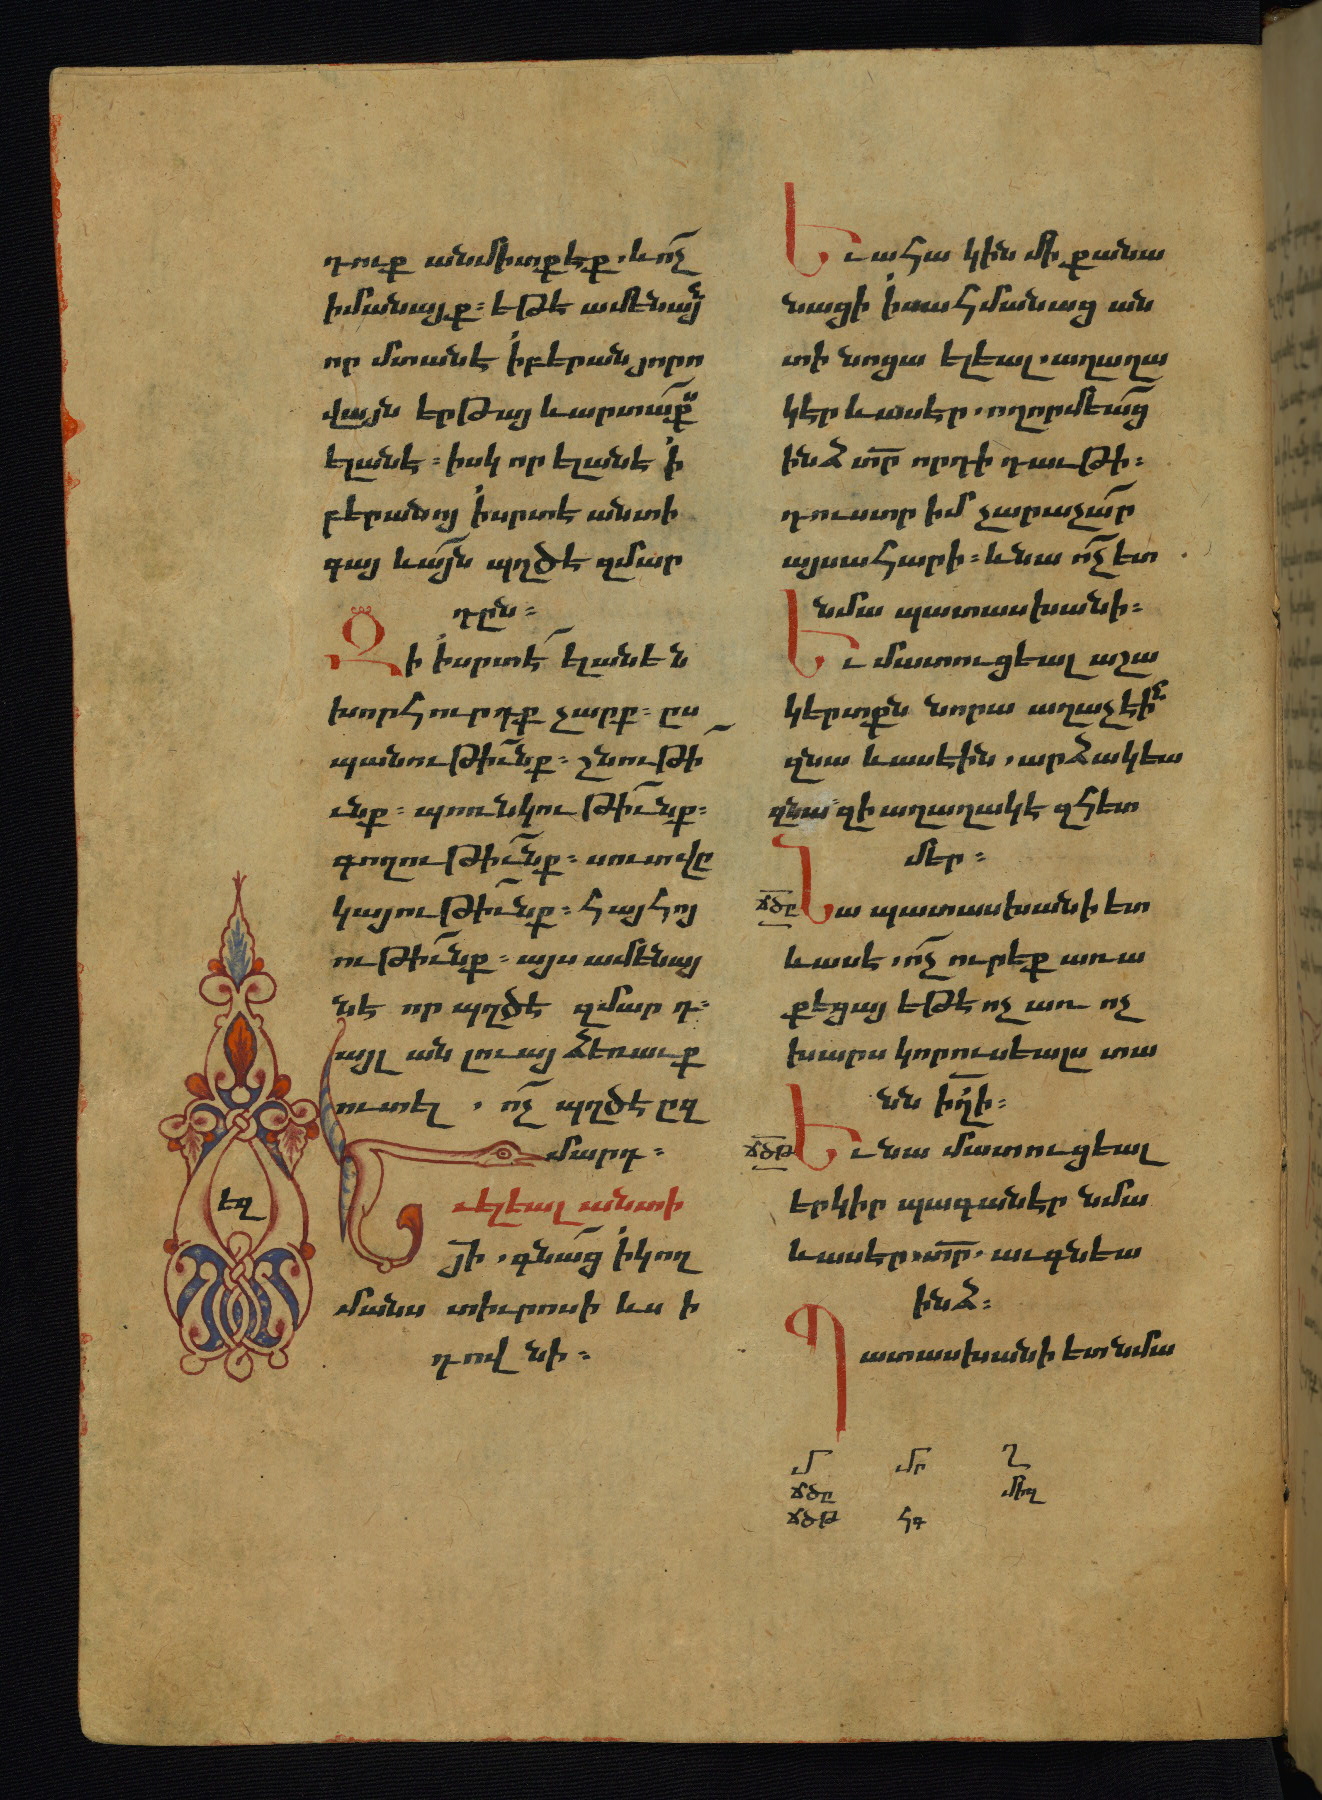 դուք անմիտքէք, և ո՛չ
իմանայք։ եթե ամենայն
որ մտանէ ՛ի բերան յորո
վայն երթայ և արտաքս
ելանէ։ իսկ որ ելանէ ՛ի
բերանոյ ՛ի սրտէ անտի
գայ և այն պղծէ զմար
դըն։
Զի ՛ի սրտէ ելանեն
խորհուրդք չարք։ ըս
պանութիւնք։ շնութի
ւնք։ պոռնկութիւնք։
գողութիւնք։ սուտվը
կայութիւնք։ հայհոյ
ութիւնք։ այս ամենայ
նէ որ պղծէ զմարդ։
այլ անլուայ ձեռաւք
ուտել, ոչ պղծէ ըզ
մարդ։
եզ
Եւ ելեալ անտի
յի, գնաց ՛ի կող
մանս տիւրոսի և ս ի
դովնի։
Եւ ահա կին մի քանա
նացի ՛ի սահմանաց ան
տի նոցա ելեալ, աղաղա
կէր և ասէր, ողորմեաց
ինձ տր որդի դաւթի։
դուստր իմ չարաչար
այսահարի։ և նա ոչ ետ
նմա պատասխանի։
Եւ մատուցեալ աշա
կերտքն նորա աղաչէին
զնա և ասէին, արձակեա
զնա զի աղաղակէ զհետ
մեր։
ճծը Նա պատասխանի ետ
և ասէ, ոչ ուրեք առա
քեցայ եթե ոչ առ ոչ
խարս կորուսեալս տա
նն իղի։
ճծթ Եւ նա մատուցեալ
երկիր պագանէր նմա
և ասէր, տր, աւգնեա
ինձ։
Պատասխանի ետ նմա
մ մր ղ
ճծը մեզ
ճծթ հգ